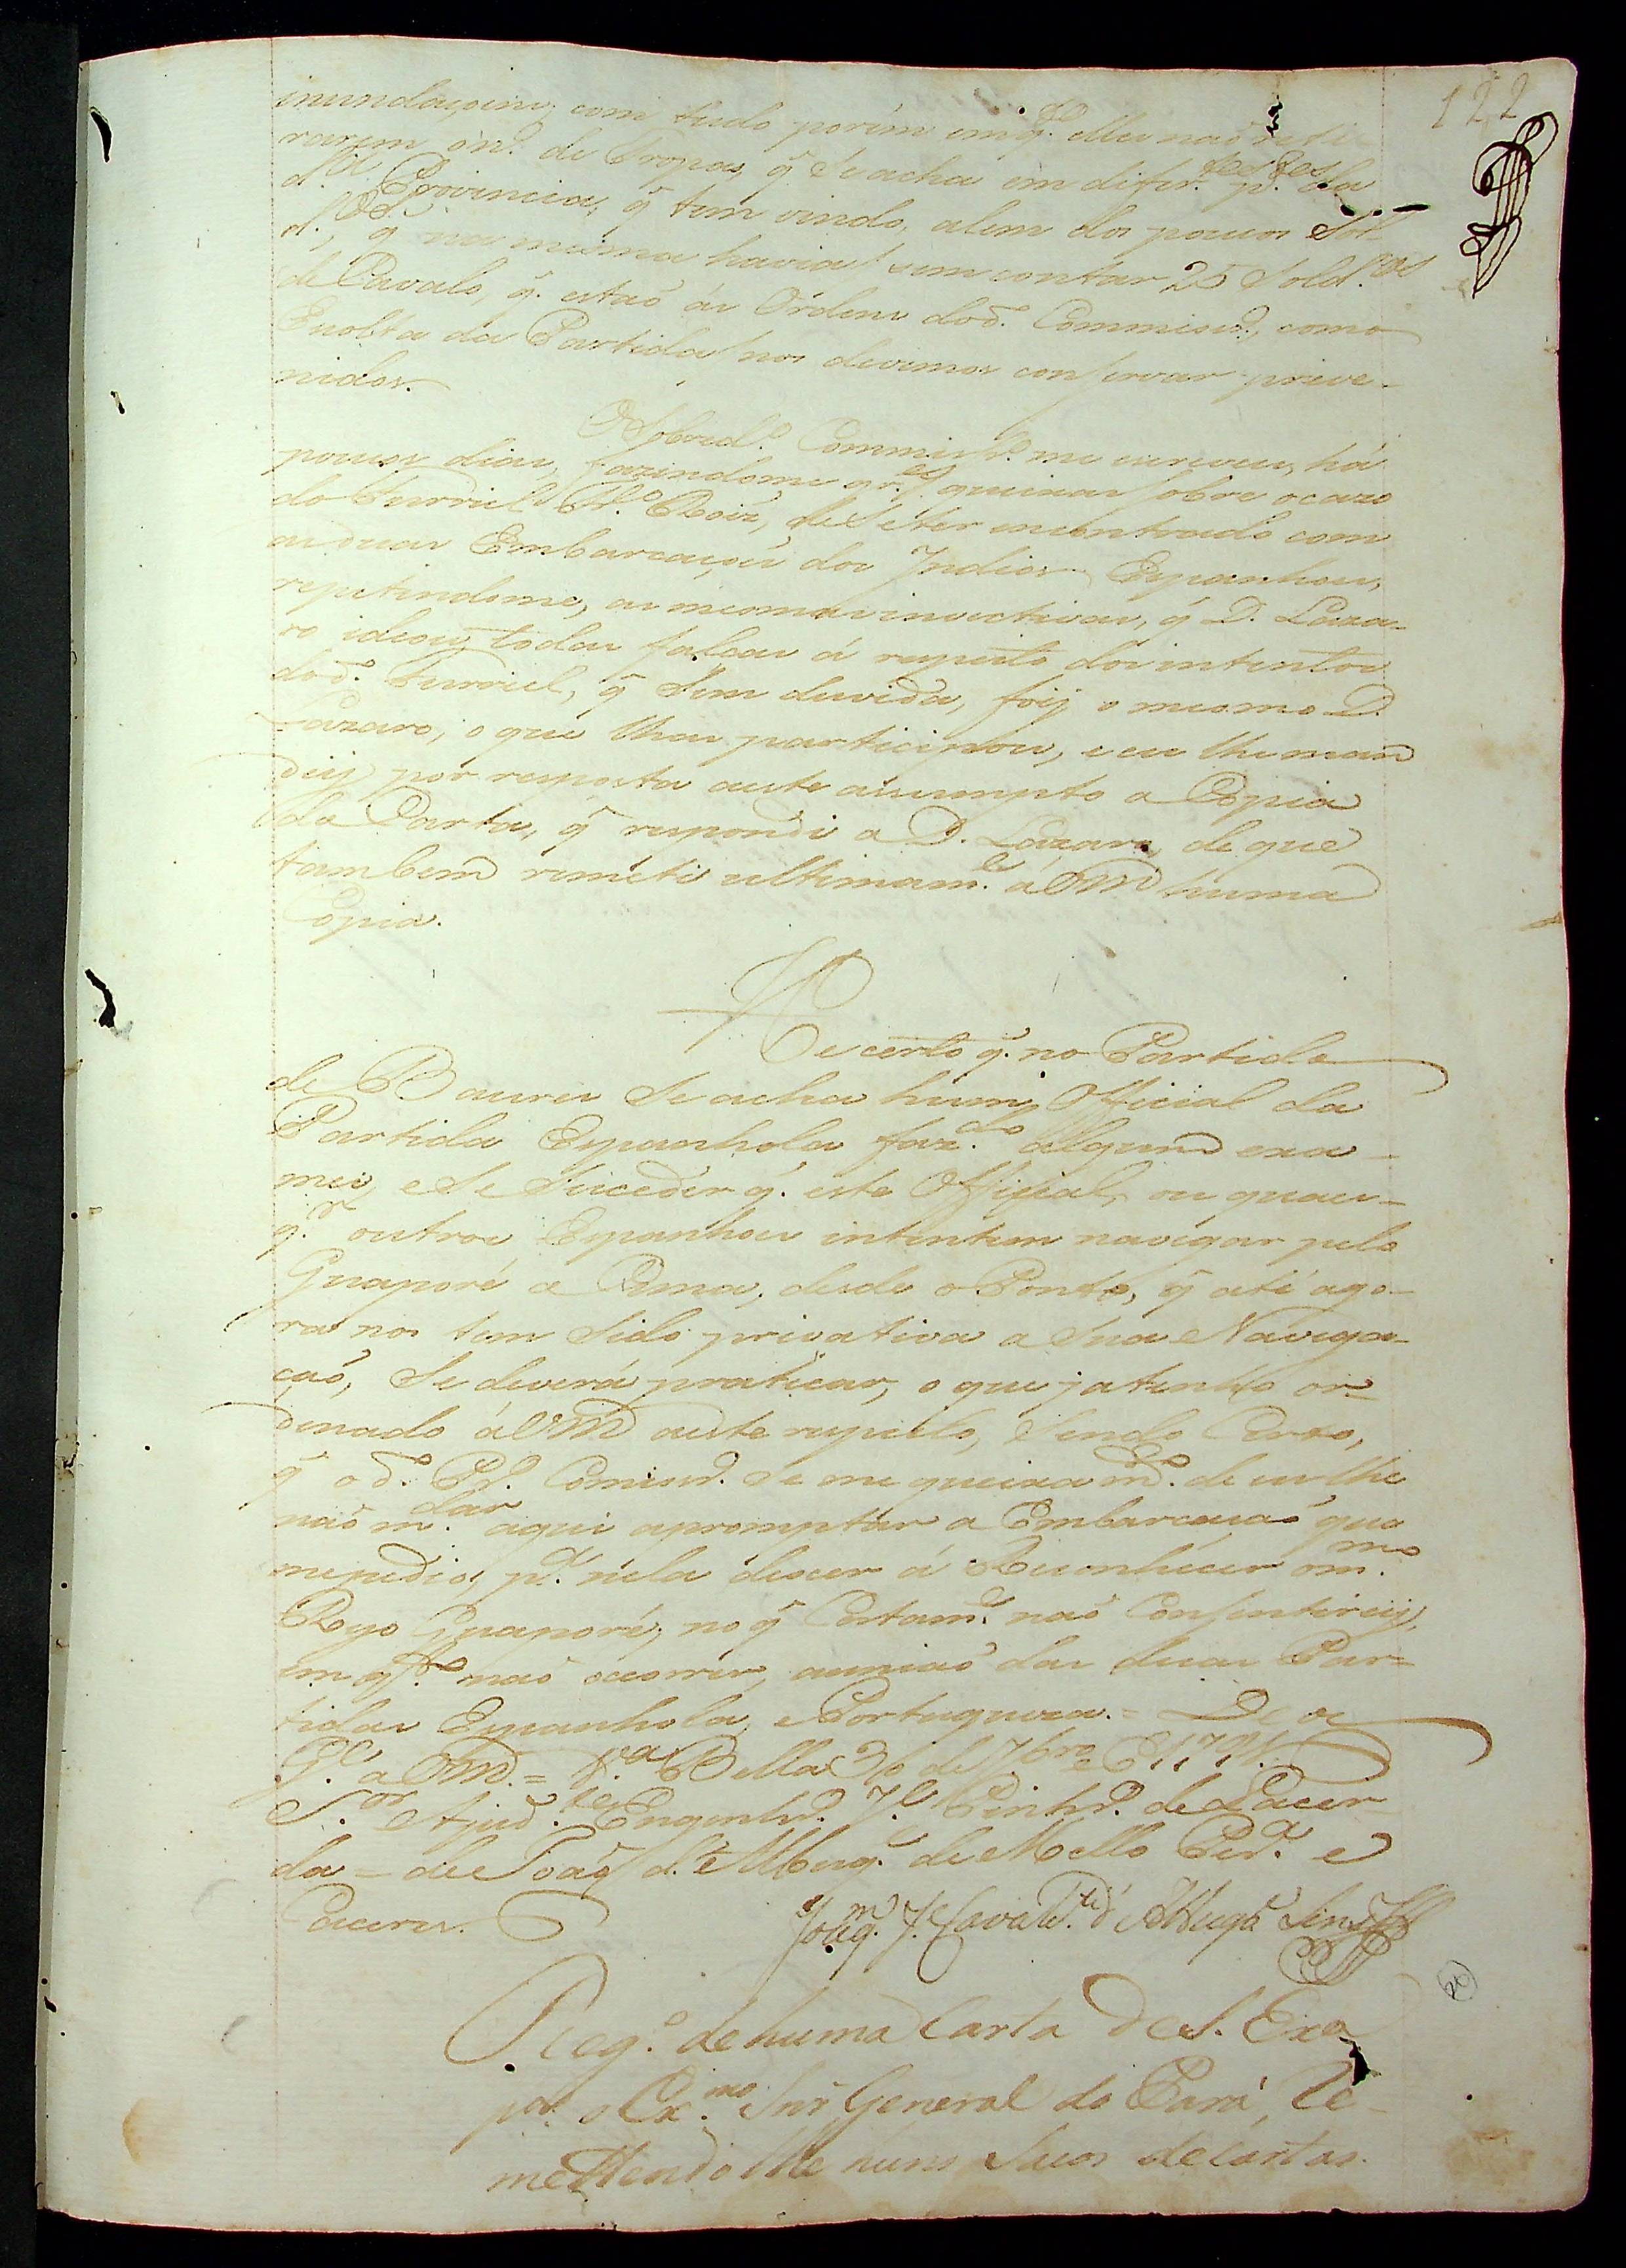 122
inundaçoens; com tudo porém em q.to elles naõ reti
rarem o n.o de Tropas, q̃ Se acha em difer.tes p.tes da
d.a Provincia, q̃ tem vindo, alem dos poucos Sol-
d.os, q̃ na mesma havia/ sem contar 25 Sold.os
de Cavalo, q̃. estaõ ás Ordens do d.o Commisr.o, como
Escolta da Partida/ nos devemos conservar preve-
nidos.
O Sobred.o Commisr.o me escreveu, há
poucos dias, fazendome gr.es queixas sobre o cazo
do Furriel Fr.o Roiz, de Se ter encontrado com
as duas Embarcaçoẽs dos Indios Espanhoes,
repetindome, as mesmas invectivas, q̃ D. Laza-
ro ideou, todas falças á respeito dos intentos
do d.o Furriel, q̃ Sem duvida, foy o mesmo D.
Lazaro, o que lhas participou, e eu lhe man
dey por resposta a este assumpto a Copia
da Carta, q̃ respondi a D. Lazaro, de que
tambem remeti ultimam.te á Vm huma
Copia.
He certo q̃. no Partido
de Baures Se acha hum Official da
Partida Espanhola faz.do algum exa-
me, e Se Suceder q̃. este Official, ou quaes-
q.r outros Espanhoes intentem navegar pelo
Guaporé a Sima, desde o Ponto, q̃ até ago-
ra nos tem Sido privativa a Sua Navega-
çaõ, Se deverá praticar, o que ja tenho or-
denado á Vm a este respeito, Sendo Certo,
q̃ o d.o Pr.o Comisr.o Se me queixa m.to de eu lhe
naõ m.dar aqui apromptar a Embarcaçaõ que
me pedio, p.a nela descer á Reconhecer o m.mo
Ryo Guaporé, no q̃ Certam.te naõ Consentirey,
em q.to naõ ocorrer, a uniaõ das duas Par-
tidas Espanhola, e Portugueza. = D.s g.
G.e a Vm. = V.a Bella 30 de 7.bro de 1791.
S.or Ajud.te Engenhr.o J.e Pinhr.o de Lacer
da = de Joaõ d'Albuq.e de Mello Per.a e
Caceres.
Joaq.m J.e Cavalc.te d'Albuq.e Lins
20
Reg.o de huma Carta de S. Exa
p.a o Ex.mo Snr General do Pará, Re-
mettendo lhe huns Sacos de Cartas.